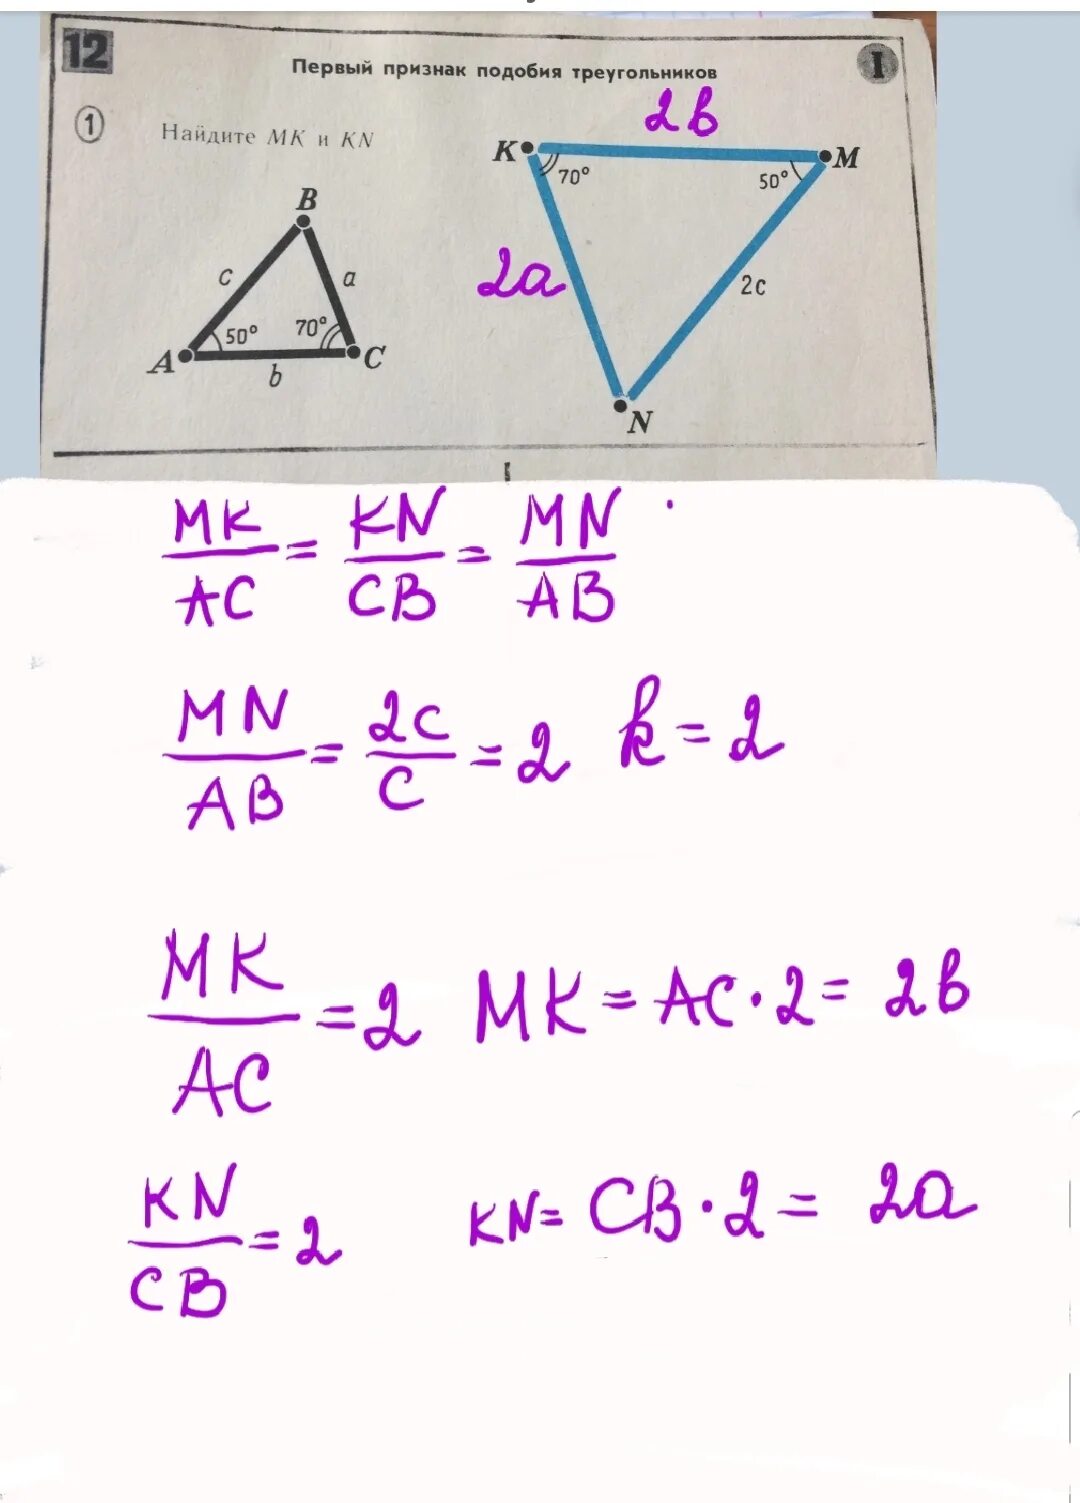 12
Первый признак подобия треугольников
I
1
Найдите MK и KN
2в
K
M
70°
50°
2a
2c
N
B
c
a
50°
70°
A
C
b
MK/AC = KN/CB = MN/AB
MN/AB = 2c/c = 2 k = 2
MK/AC = 2 MK = AC · 2 = 2в
KN/CB = 2 KN = CB · 2 = 2a